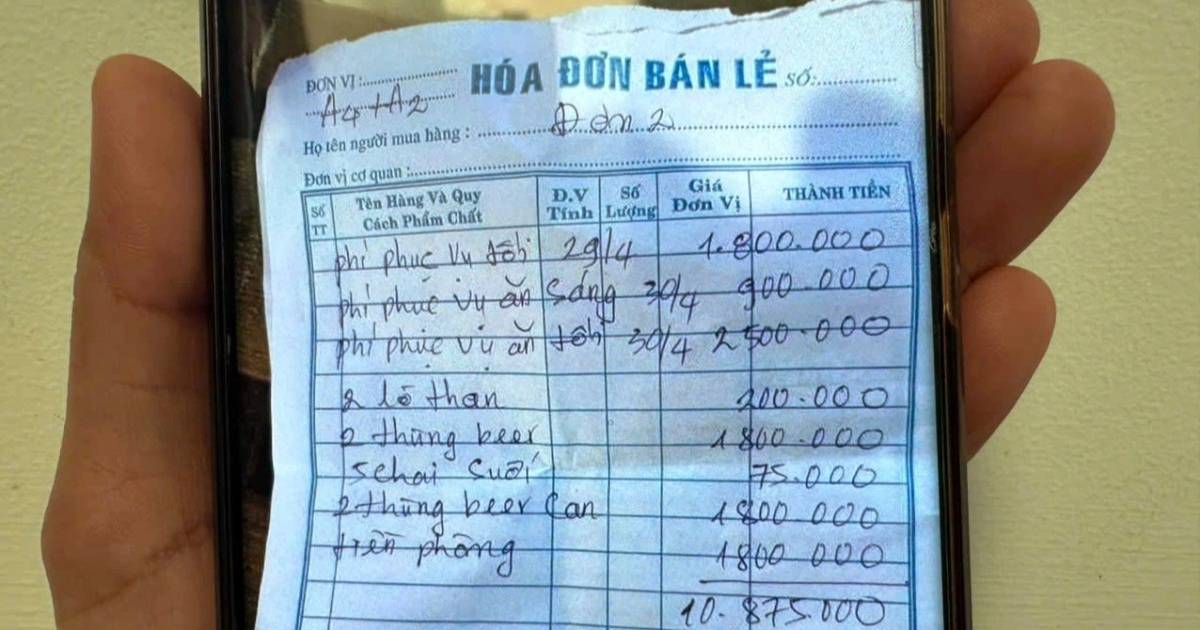 HÓA ĐƠN BÁN LẺ Số:
ĐƠN VỊ:
A4+A2
Họ tên người mua hàng : Đơn 2
Đơn vị cơ quan :
Số TT Tên Hàng Và Quy Cách Phẩm Chất Đ.V Tính Số Lượng Giá Đơn Vị THÀNH TIỀN
phí phục vụ tối 29/4 1.800.000
phí phục vụ ăn sáng 30/4 900.000
phí phục vụ ăn tối 30/4 2500.000
2 lò than 200.000
2 thùng beer 1800.000
5chai suối 75.000
2 thùng beer Can 1800 000
tiền phòng 1800 000
10.875.000